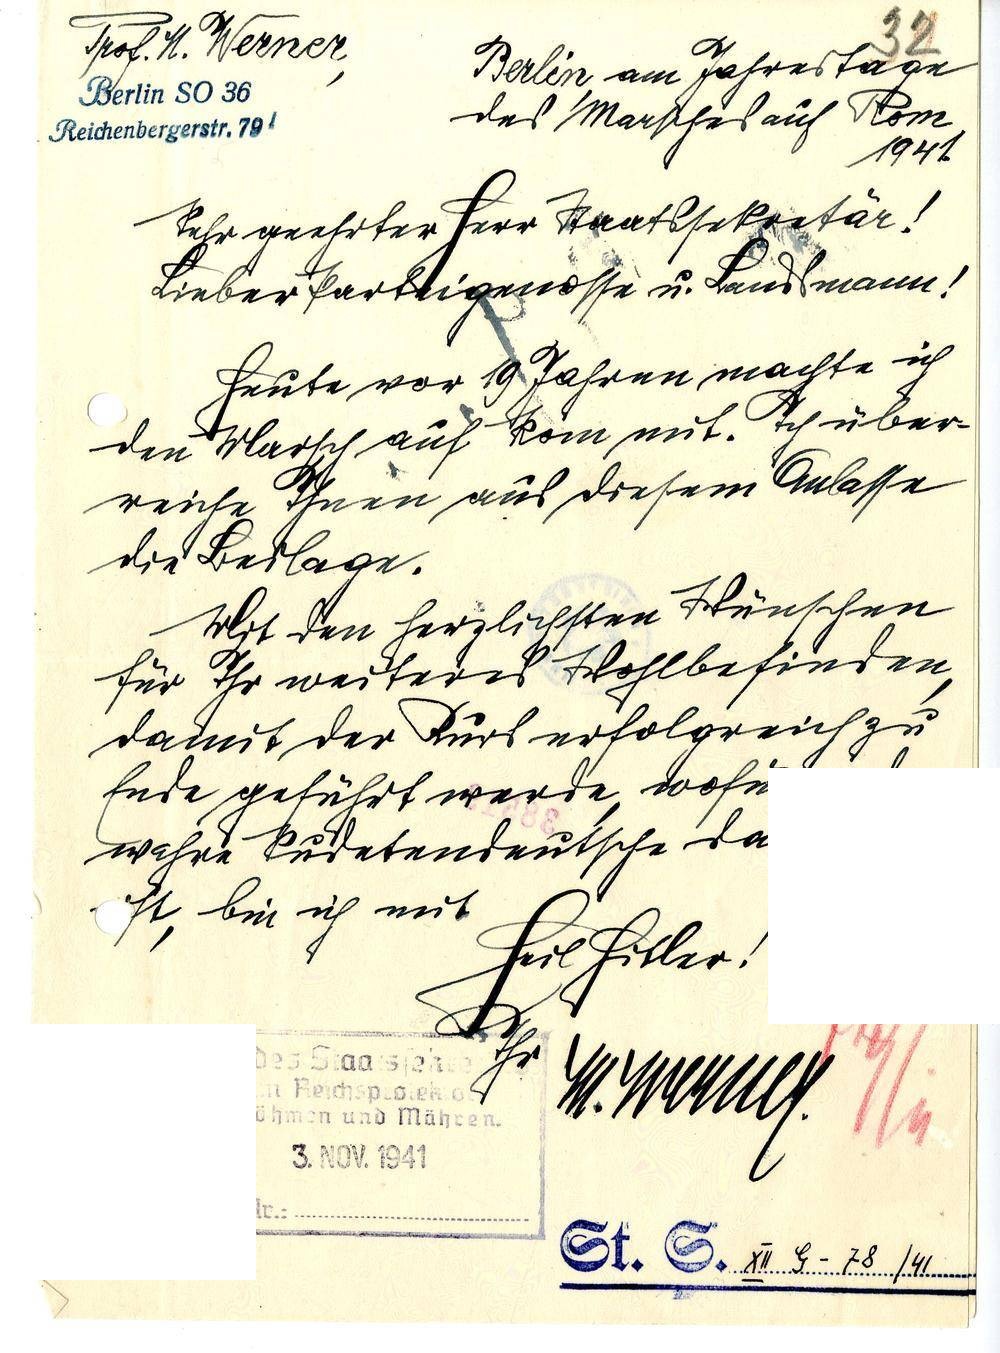 32
Prof. M. Werner,
Berlin SO 36
Reichenbergerstr. 79
Berlin, am Jahrestage
des Marsches auf Rom
1941
Sehr geehrter Herr Staatssekretär!
Lieber Parteigenosse u. Landsmann!
Heute vor 19 Jahren machte ich
den Marsch auf Rom mit. Ich über-
reiche Ihnen aus diesem Anlasse
die Beilage.
Mit den herzlichsten Wünschen
für Ihr weiteres Wohlbefinden,
damit der Kurs erfolgreich zu
Ende geführt werde,
wahre Sudetendeutsche
ist, bin ich mit
Heil Hitler!
Ihr
M. Werner.
des
Reichsprotektor
und Mähren.
3. NOV. 1941
St. S. XII G - 78 /41